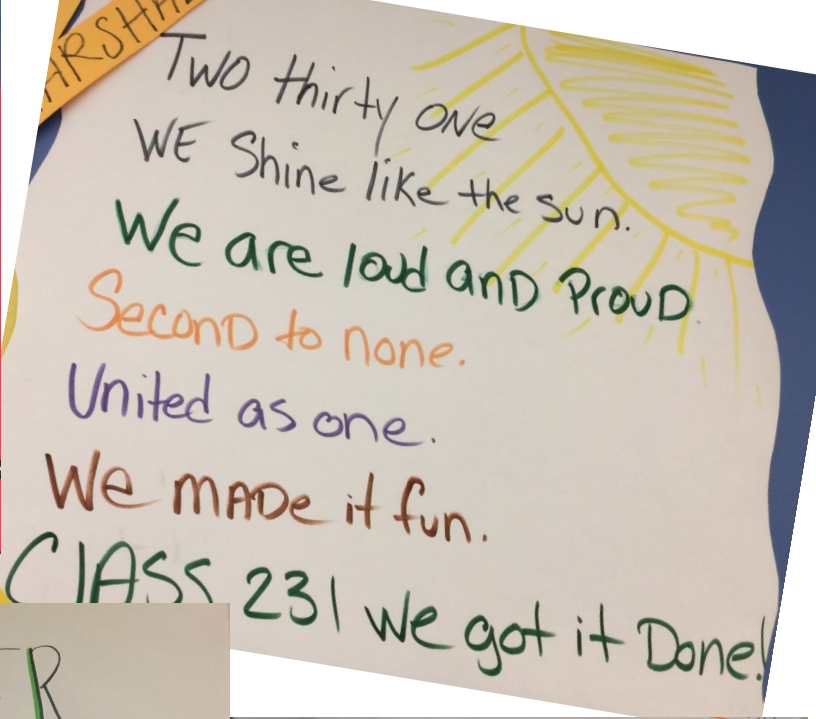 Two thirty one
WE Shine like the sun.
We are loud anD ProuD.
SeconD to none.
United as one.
We mADe it fun.
ClASS 231 we got it Done!